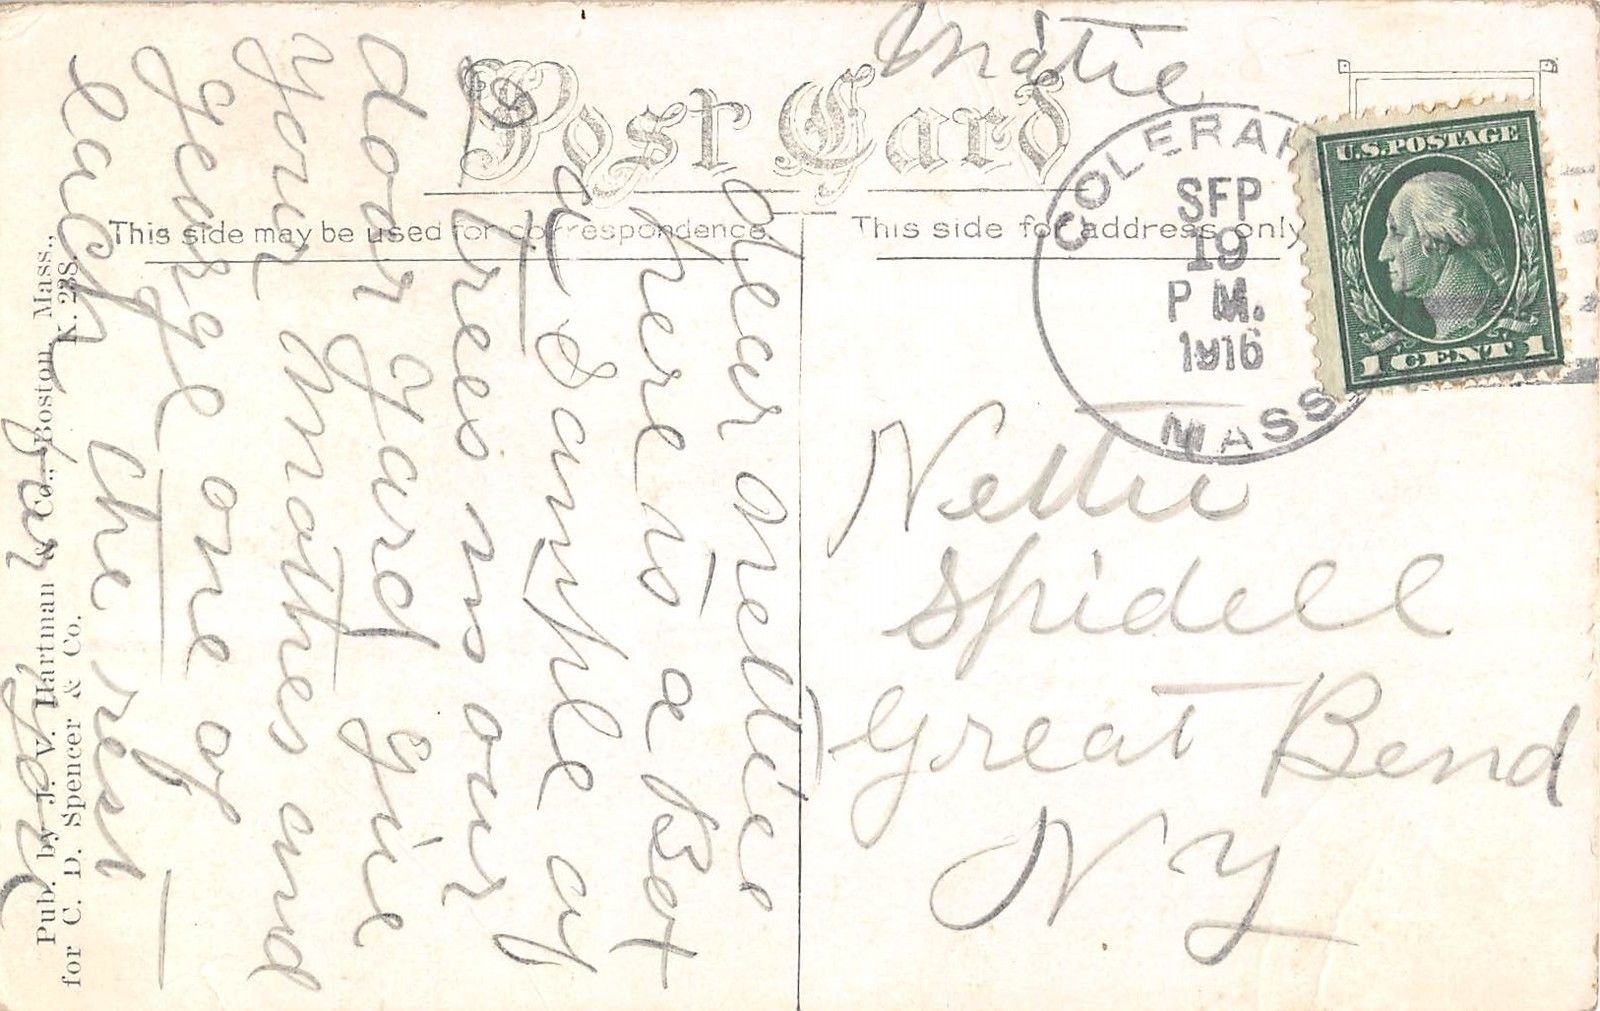 Post Card
This side may be used for correspondence
This side for address only
COLERAI
SEP
19
P M.
1916
MASS.
U.S. POSTAGE
1 CENT 1
Nellie
Spidell
Great Bend
N. Y
dear Nellie
here is a Bot
a Sample of
trees ns our
door yard give
your mother and
gearge one of
each the rest
for you
Pub. by J. V. Hartman & Co., Boston, Mass.,
for C. D. Spencer & Co. K. 238.